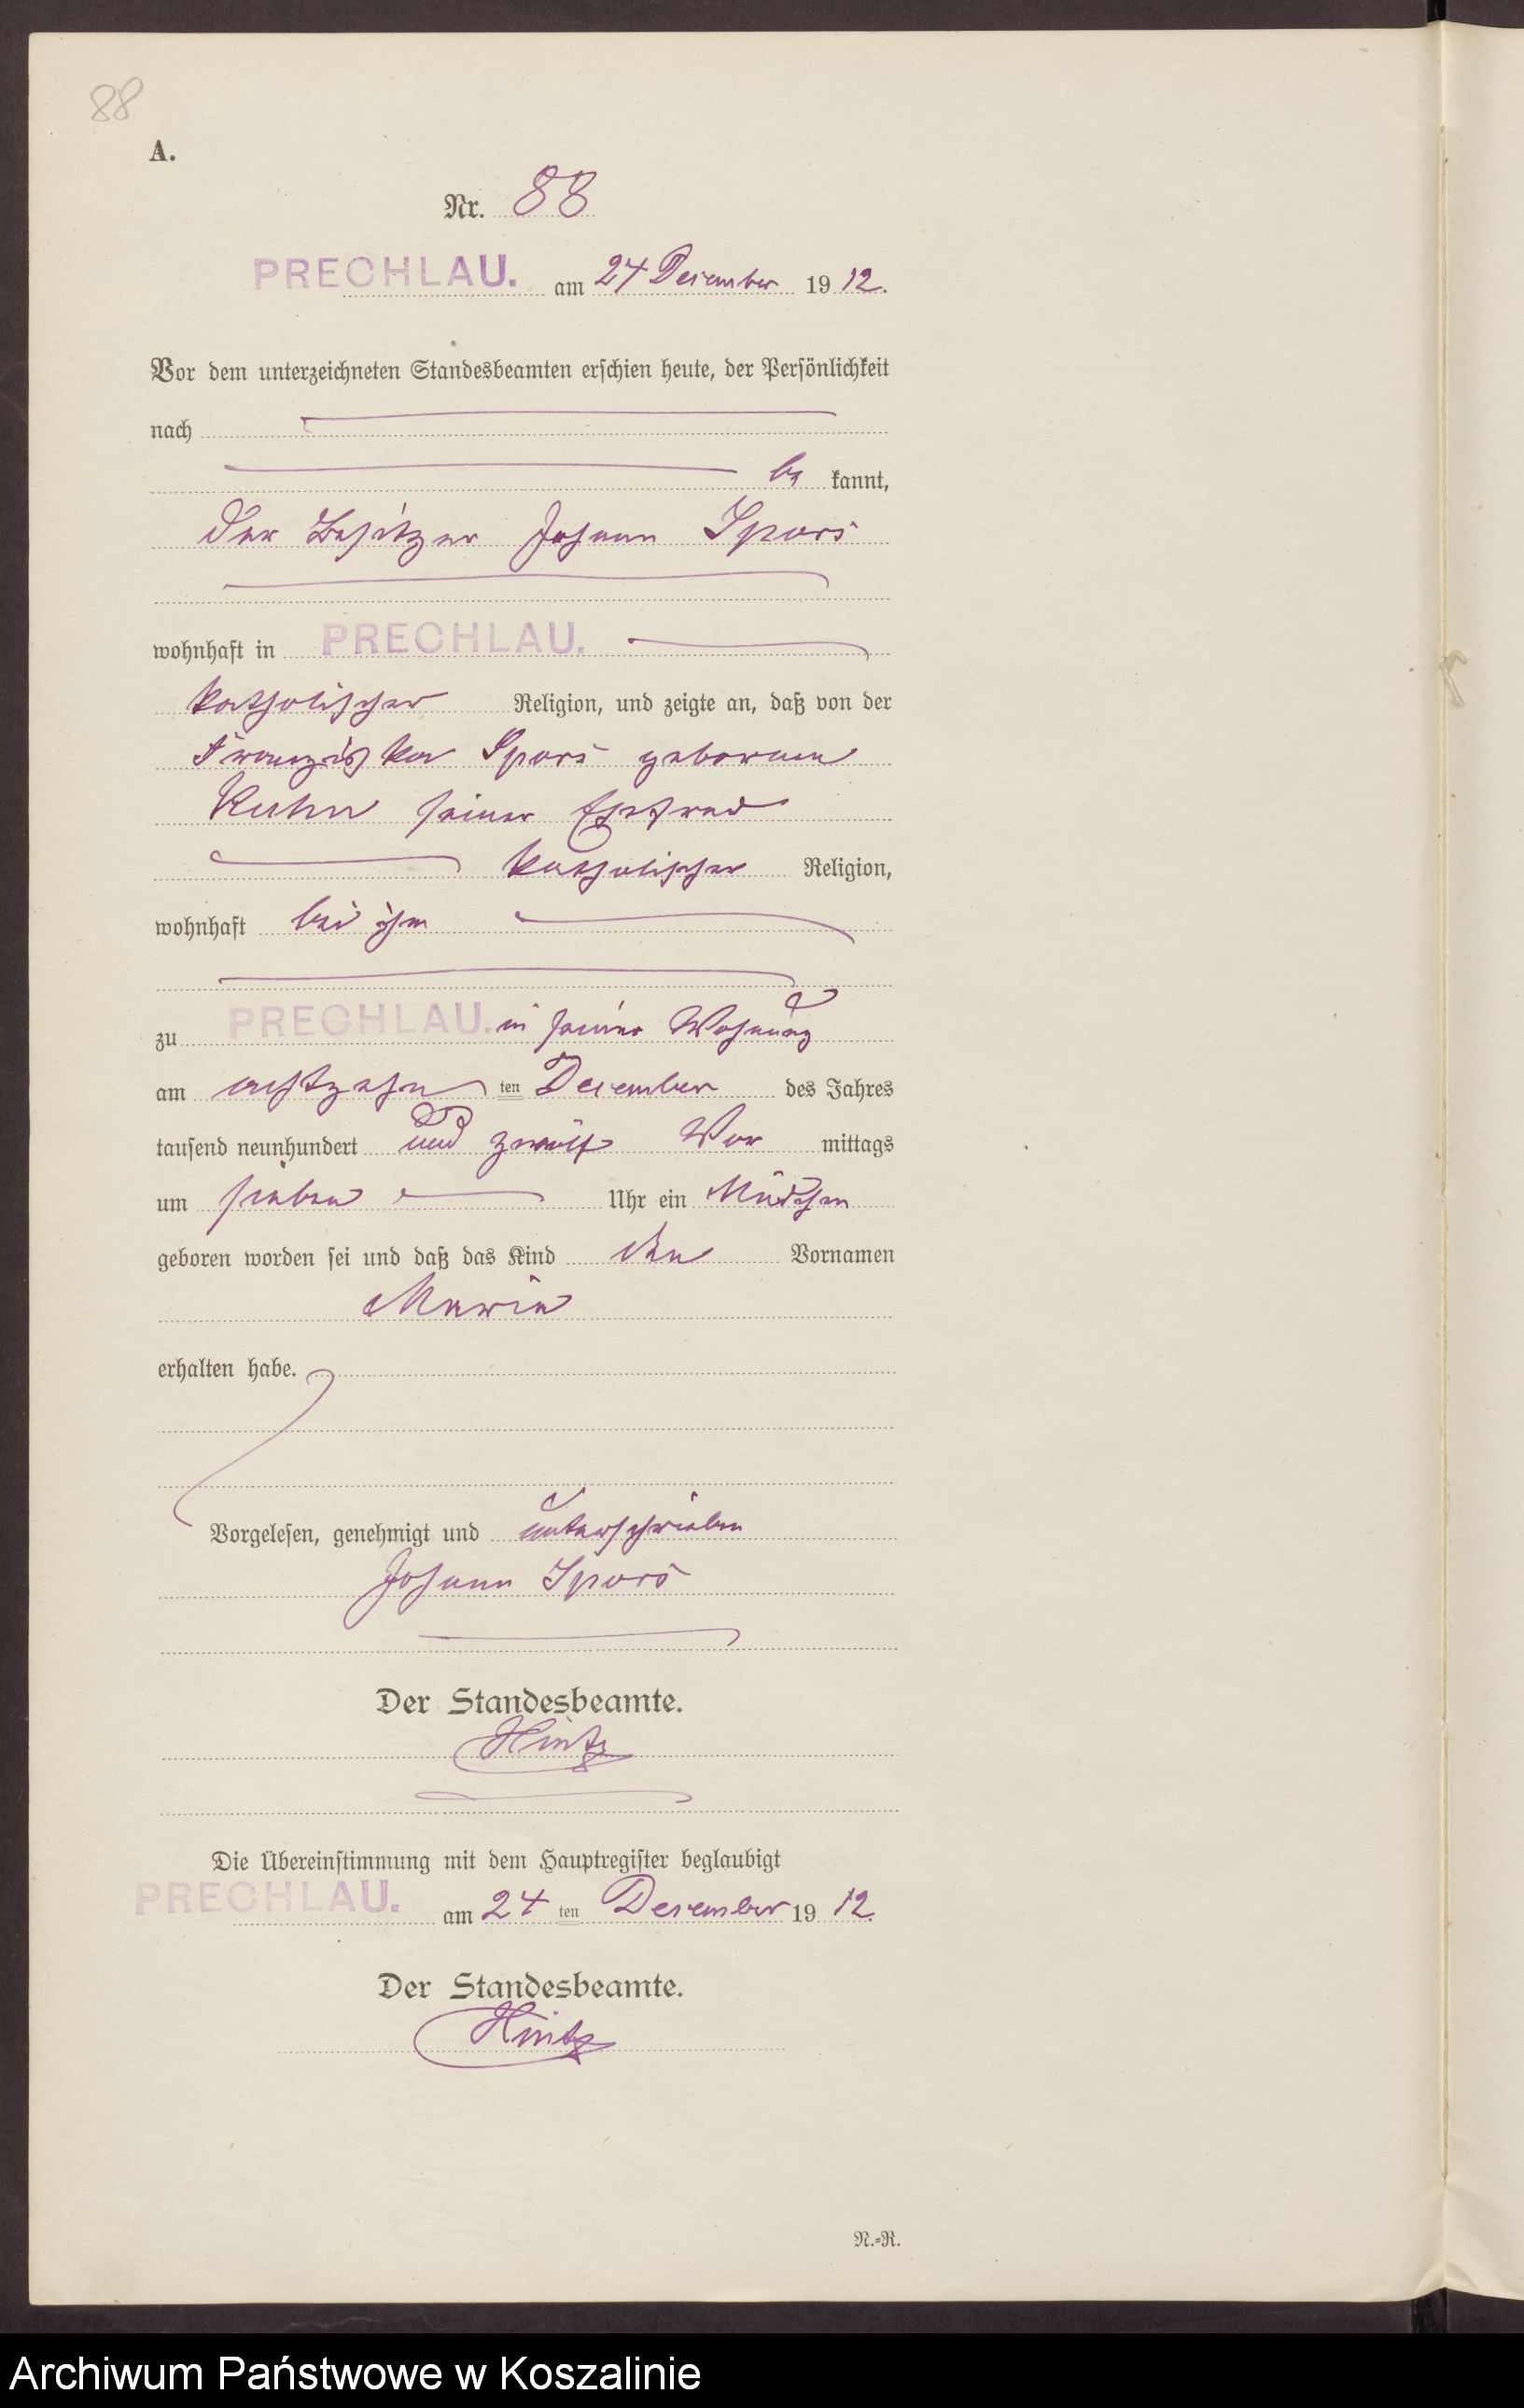 88
A.
Nr. 88
PRECHLAU. am 24 Dezember 1912.
Vor dem unterzeichneten Standesbeamten erschien heute, der Persönlichkeit
nach
be kannt,
der Besitzer Johann Spors
wohnhaft in PRECHLAU.
katholischer Religion, und zeigte an, daß von der
Franziska Spors geborene
Kuhn seiner Ehefrau
katholischer Religion,
wohnhaft bei ihm
zu PRECHLAU. in seiner Wohnung
am achtzehn ten Dezember des Jahres
tausend neunhundert und zwölf Vor mittags
um sieben Uhr ein Mädchen
geboren worden sei und daß das Kind den Vornamen
Maria
erhalten habe.
Vorgelesen, genehmigt und unterschrieben
Johann Spors
Der Standesbeamte.
Hintz
Die Übereinstimmung mit dem Hauptregister beglaubigt
PRECHLAU. am 24 ten Dezember 1912.
Der Standesbeamte.
Hintz
N.=R.
Archiwum Państwowe w Koszalinie